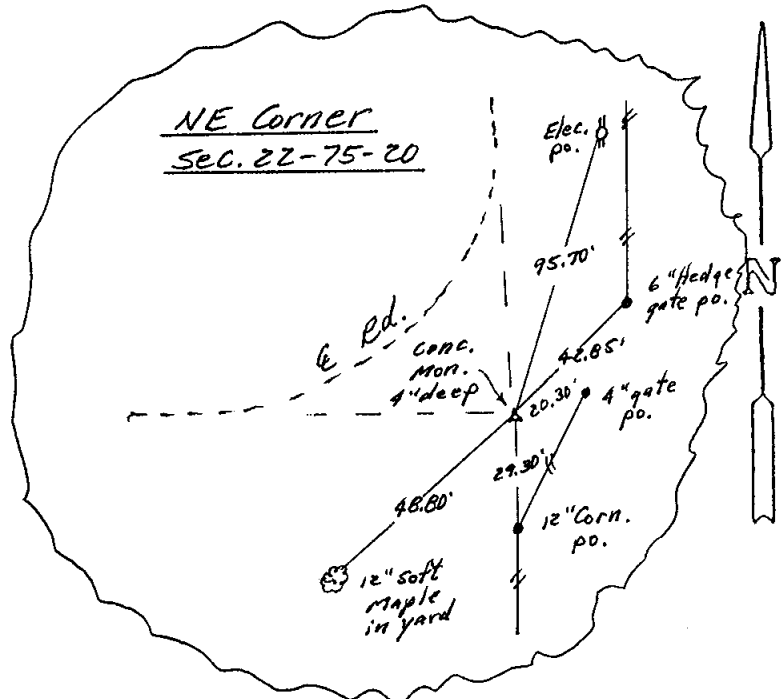 NE Corner
Sec. 22-75-20
Elec.
po.
95.70'
N
6" Hedge
gate po.
℄ Rd.
Conc.
Mon.
4" deep
42.85'
20.30'
4" gate
po.
29.30'
48.80'
12" Corn.
po.
12" Soft
Maple
in yard